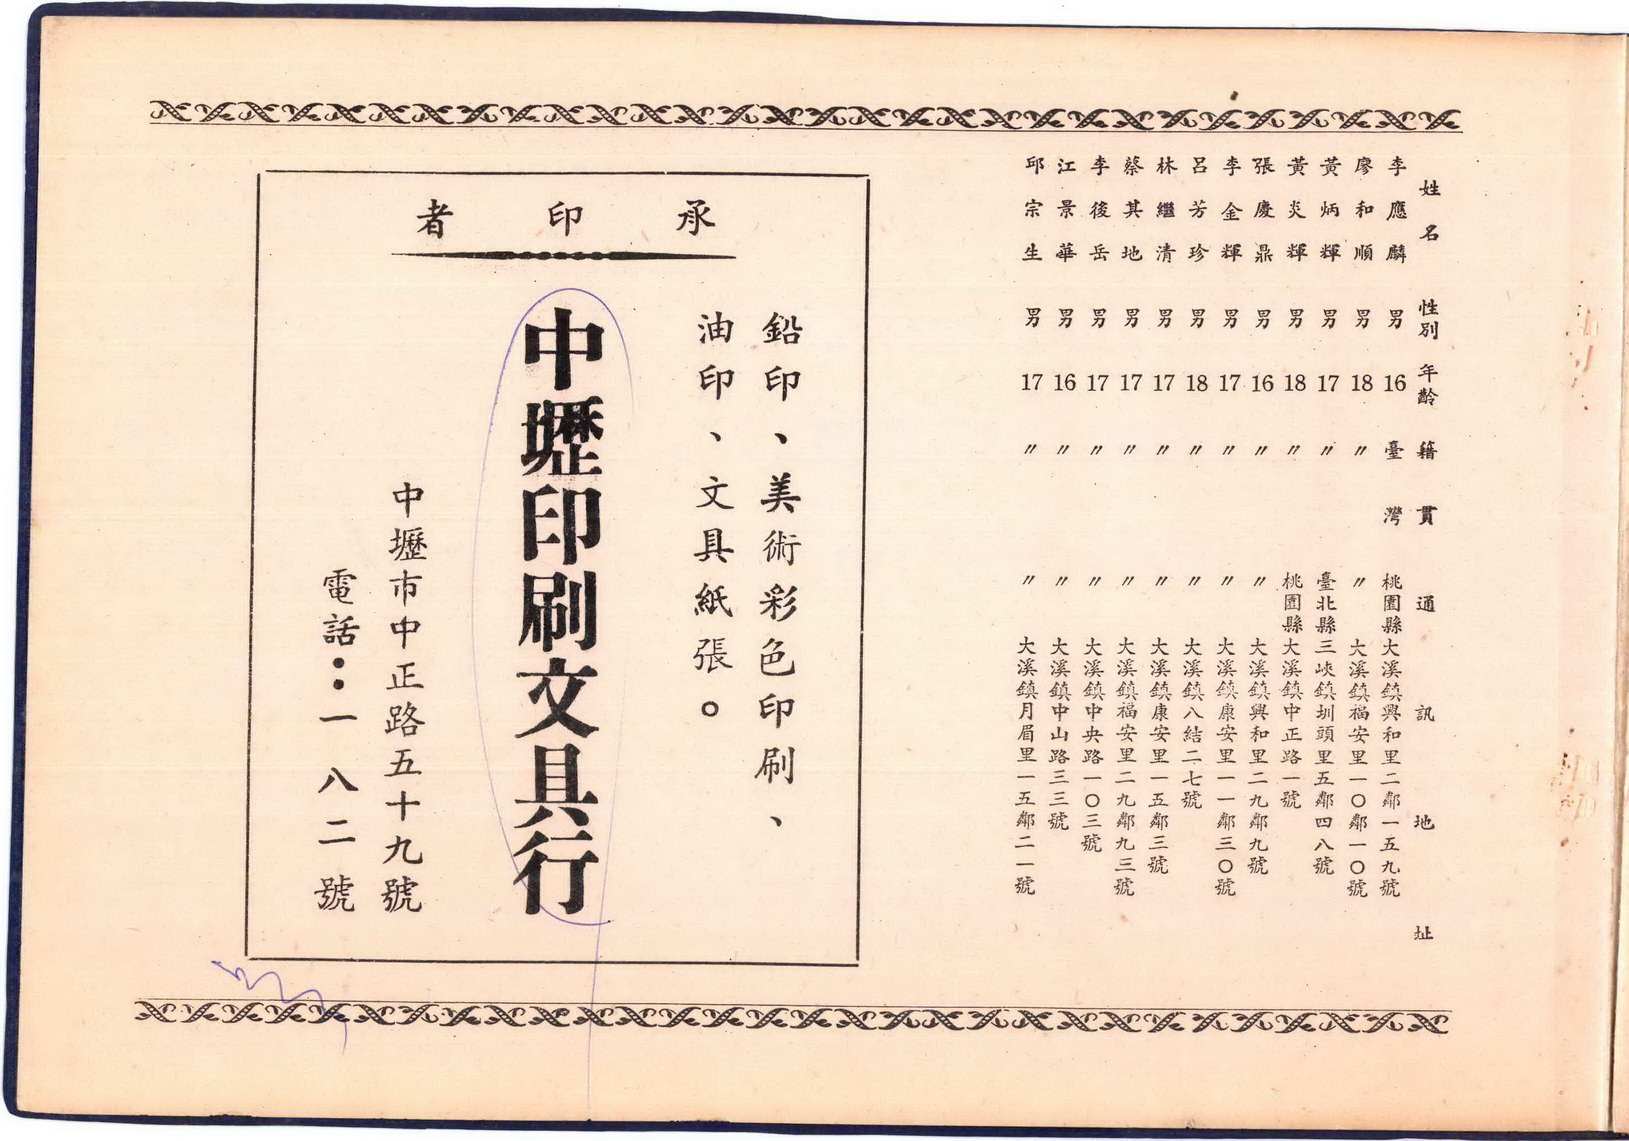 姓名 性別 年齡 籍貫 通訊地址
李應麟 男 16 臺灣 桃園縣大溪鎮興和里二鄰一五九號
廖和順 男 18 〃 〃 大溪鎮福安里一〇鄰一〇號
黃炳輝 男 17 〃 臺北縣三峽鎮圳頭里五鄰四八號
黃炎輝 男 18 〃 桃園縣大溪鎮中正路一號
張慶鼎 男 16 〃 〃 大溪鎮興和里二九鄰九號
李金輝 男 17 〃 〃 大溪鎮康安里一一鄰三〇號
呂芳珍 男 18 〃 〃 大溪鎮八結二七號
林繼清 男 17 〃 〃 大溪鎮康安里一五鄰三號
蔡其地 男 17 〃 〃 大溪鎮福安里二九鄰九三號
李後岳 男 17 〃 〃 大溪鎮中央路一〇三號
江景華 男 16 〃 〃 大溪鎮中山路三三號
邱宗生 男 17 〃 〃 大溪鎮月眉里一五鄰二一號
承印者
鉛印、美術彩色印刷、
油印、文具紙張。
中壢印刷文具行
中壢市中正路五十九號
電話：一八二號